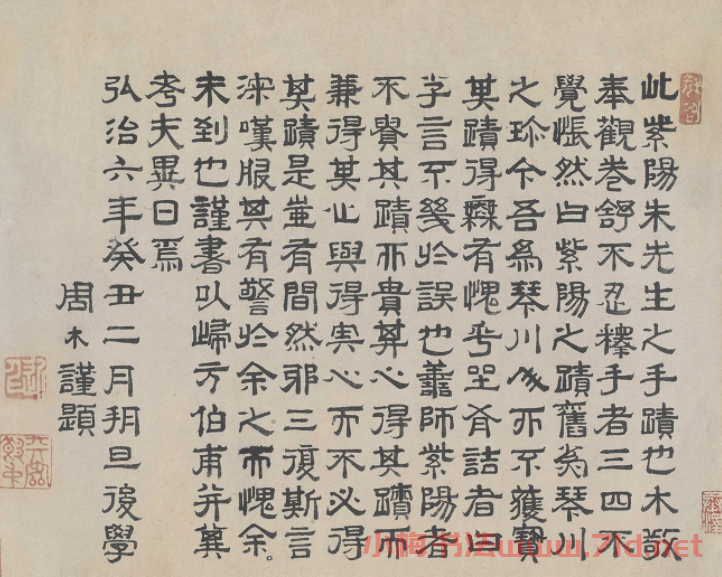 此紫陽朱先生之手蹟也木敬
奉觀卷舒不忍釋手者三四不
覺悵然曰紫陽之蹟舊為琴川
之珍今吾為琴川人而不獲寶
其蹟得無有愧乎坐有詰者曰
子言不幾於誤也善師紫陽者
不貴其蹟而貴其心得其蹟而
兼得其心與得其心而不必得
其蹟是豈有間然邪三復斯言
深嘆服其有警於余之而愧余
未到也謹書以歸方伯甫并冀
考夫異日焉
弘治六年癸丑二月朔旦後學
周木謹題
小梅书法www.7ld.net